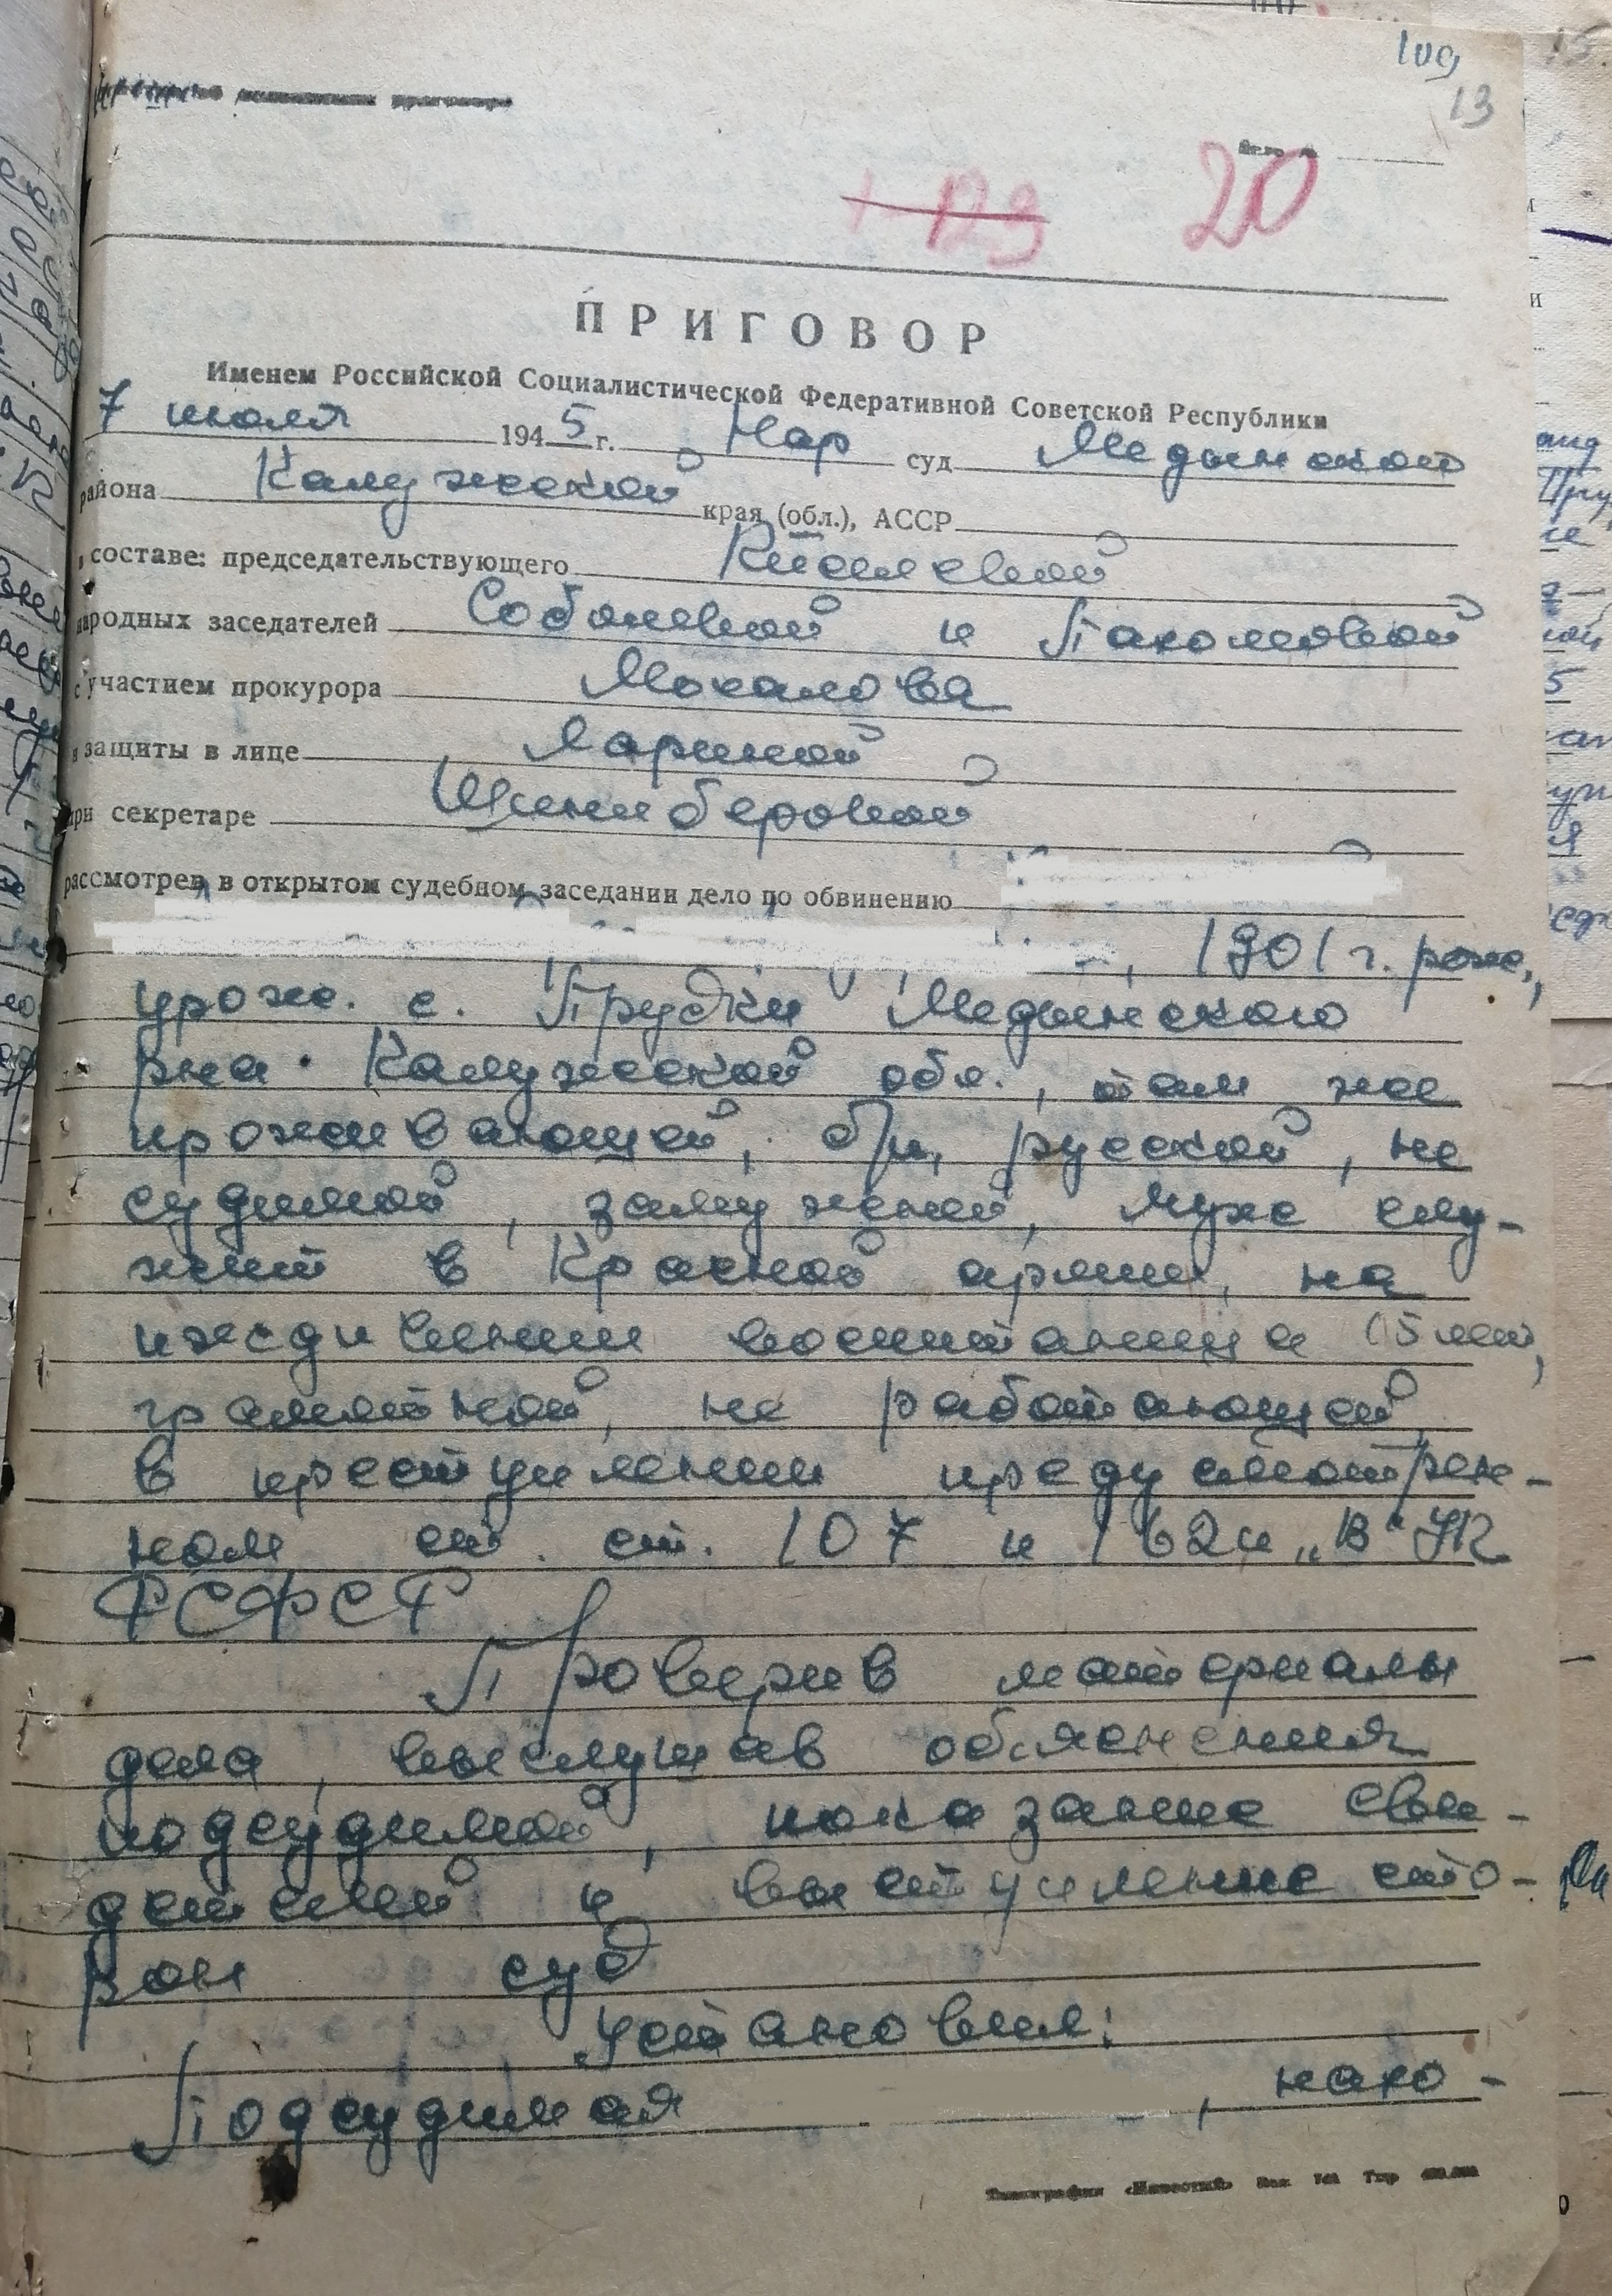 109
13
129 20
ПРИГОВОР
Именем Российской Социалистической Федеративной Советской Республики
7 июля 1945 г. Нар суд Медынского
района Калужской края (обл.), АССР
составе: председательствующего Киселевой
народных заседателей Соболевой и Пахомовой
с участием прокурора Мохалова
защиты в лице Лариной
при секретаре
рассмотрев в открытом судебном заседании дело по обвинению
, 1901 г. рожд.,
урож. с. Прудки Медынского
рна. Калужской обл., там же
проживающей, б/п, русской, не
судимой, замужней, муж слу-
жит в Красной армии, на
иждивении воспитанница 15 лет,
грамотной, не работающей
в преступлении предусмотрен-
ном ст. ст. 107 и 162 п „В" УК
РСФСР
Проверив материалы
дела, выслушав обяснения
подсудимой, показание сви-
детелей и выступление сто-
рон суд
Установил:
Подсудимая , нахо-